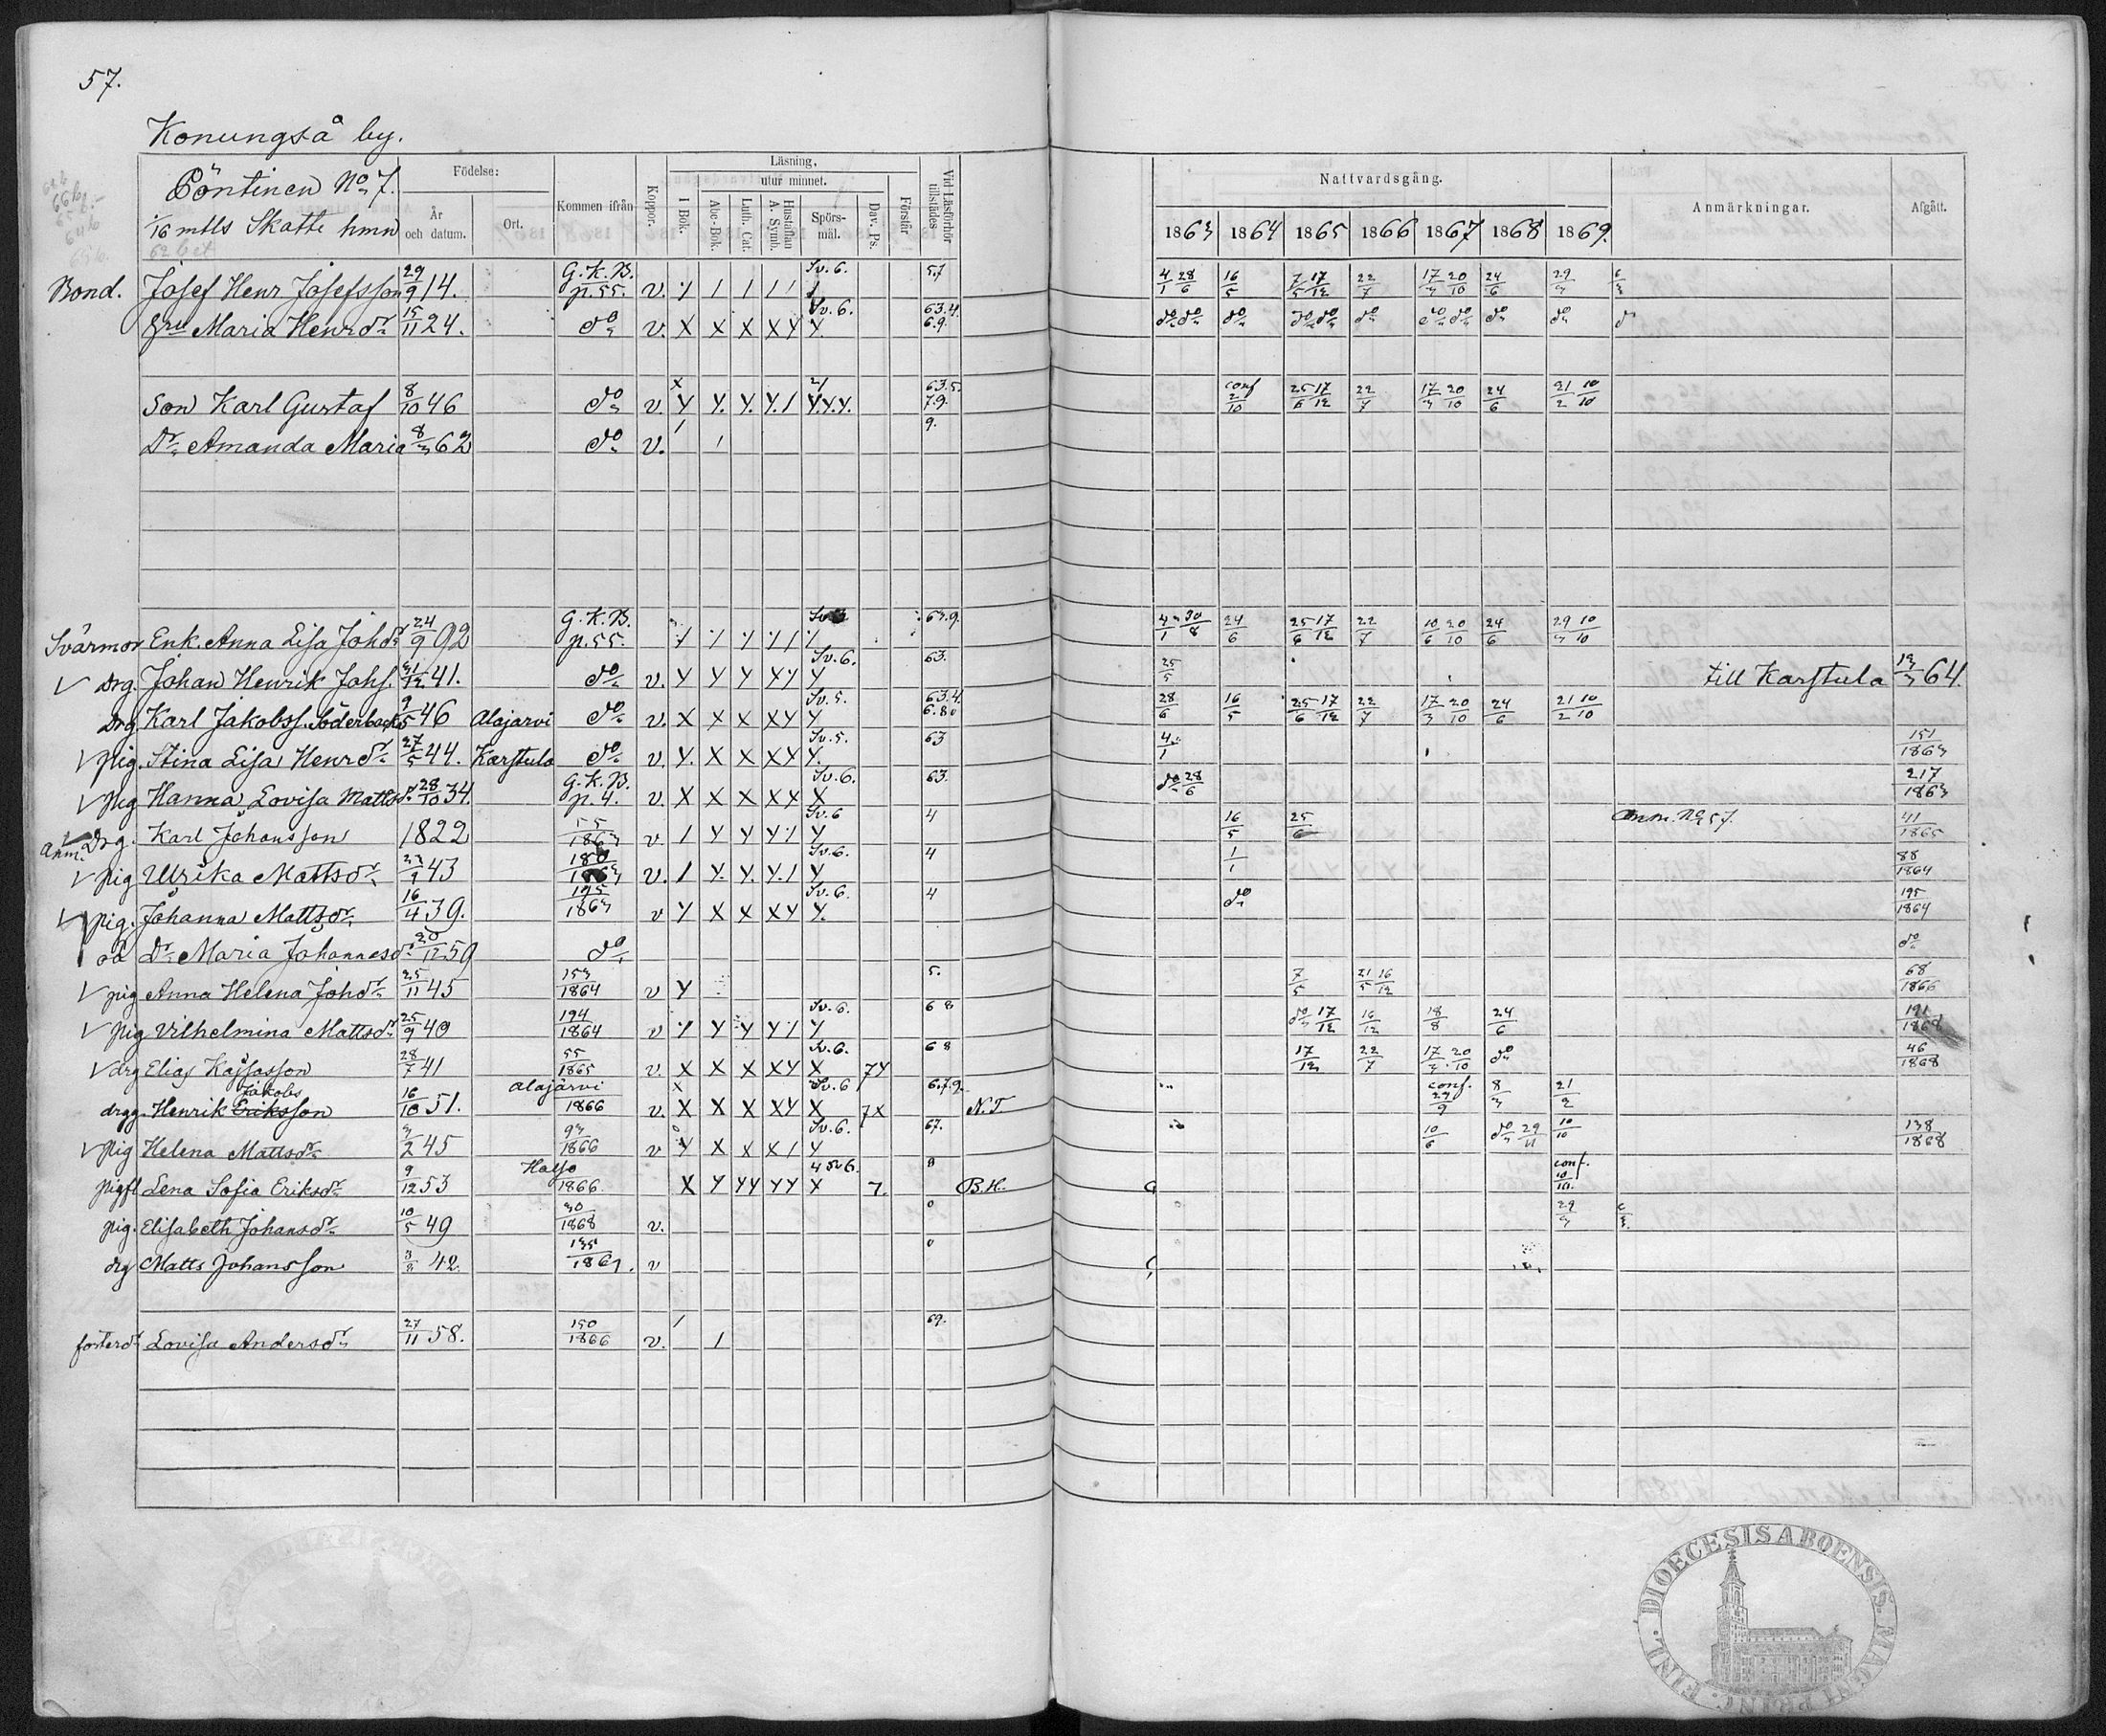 57.
Konungså by.
Pöntinen No 7.
1/16 mtls Skatte hmn
Födelse:
År och datum.
Ort.
Kommen ifrån
Koppor.
Läsning,
utur minnet.
I Bok.
Abc-Bok.
Luth. Cat.
Hustaflan A. Symb.
Spörsmål.
Dav. Ps.
Förstår
Vid Läsförhör tillstädes
Nattvardsgång.
1863 1864 1865 1866 1867 1868 1869.
Anmärkningar.
Afgått.
Bond. Josef Henr Josefsson 29/9 14. G.K.B. p.55. v. Sv.6. 5.7 4/1 28/6 16/5 7/5 17/12 22/7 17/3 20/10 24/6 29/3
Hru Maria Henrdr 15/11 24. do v. X X X X Y Y. Sv.6. 63.4. 6.9. do do do do do do do do do do
Son Karl Gustaf 8/10 46 do v. Y Y. Y. Y. / Y.Y.Y. 63.5. 7.9. conf 2/10 25/6 17/12 22/7 17/3 20/10 24/6 21/2 10/10
Dr Amanda Maria 8/3 62 do v. 9.
Svärmor Enk. Anna Lisa Johdr 24/9 92 G.K.B. p.55. 63.9. 4/1 30/8 24/6 25/6 17/12 22/7 10/6 20/10 24/6 29/3 10/10
drg. Johan Henrik Johs. 31/12 41. do v. Y Y Y X Y Y Sv.6. 63. 25/5 till Karstula 13/3 64.
Drg. Karl Jakobss. Söderback 9/5 46 Alajarvi do v. X X X X Y Y Sv.5. 63.4. 6.8. 28/6 16/5 25/6 17/12 22/7 17/3 20/10 24/6 21/2 10/10
pig. Stina Lisa Henrdr 27/5 44. Karstula do v. Y. X X X Y Y. Sv.5. 63 4/1 151/1863
pig Hanna Lovisa Mattsdr 28/10 34. G.K.B. p.4. v. X X X X Y X Sv.6. 63. do 28/6 217/1863
Anm. Drg. Karl Johansson 1822 55/1863 v. / Y Y Y / Y Sv.6 4 16/5 25/6 Anm. No 57. 41/1865
pig Ulrika Mattsdr 43 v. / Y. Y. Y. / Y Sv.6. 4 1/1 88/1864
pig. Johanna Mattsdr 16/4 39. 195/1863 v Y X X X Y Y. Sv.6. 4 do 195/1864
oä Dr Maria Johannesdr 20/12 59 do do
pig Anna Helena Johdr 25/11 45 153/1864 v Y 5. 7/5 21/5 16/12 68/1866
pig Vilhelmina Mattsdr 25/9 40 194/1864 v Y Y Y / Y Sv.6. 68 do 17/12 16/12 18/8 24/6 191/1868
drg Elias Kajsasson 28/7 41 55/1865 v. X X X X Y X 7Y Sv.6. 68 17/12 22/7 17/3 20/10 do 46/1868
drgg. Henrik Eriksson Jakobs 16/10 51. Alajärvi 1866 v. X X X X Y X 7X Sv.6 6.7.9. N.T. conf. 29/9 8/3 21/2
pig Helena Mattsdr 3/2 45 93/1866 v Y X X X / Y Sv.6. 67. 10/6 do 29/11 10/10 138/1868
pigfl Lena Sofia Eriksdr 9/12 53 Halso 1866. X Y YY YY X 7. 8 B.H. conf. 10/10.
pig. Elisabeth Johansdr 10/5 49 30/1868 v. 0 29/3
drg Matts Johansson 3/8 42. 135/1867. v 0
fosterdr Lovisa Andersdr 27/11 58. 150/1866 v. / 69.
DIOECESIS ABOENSIS. MAGNI PRINC. FINL.